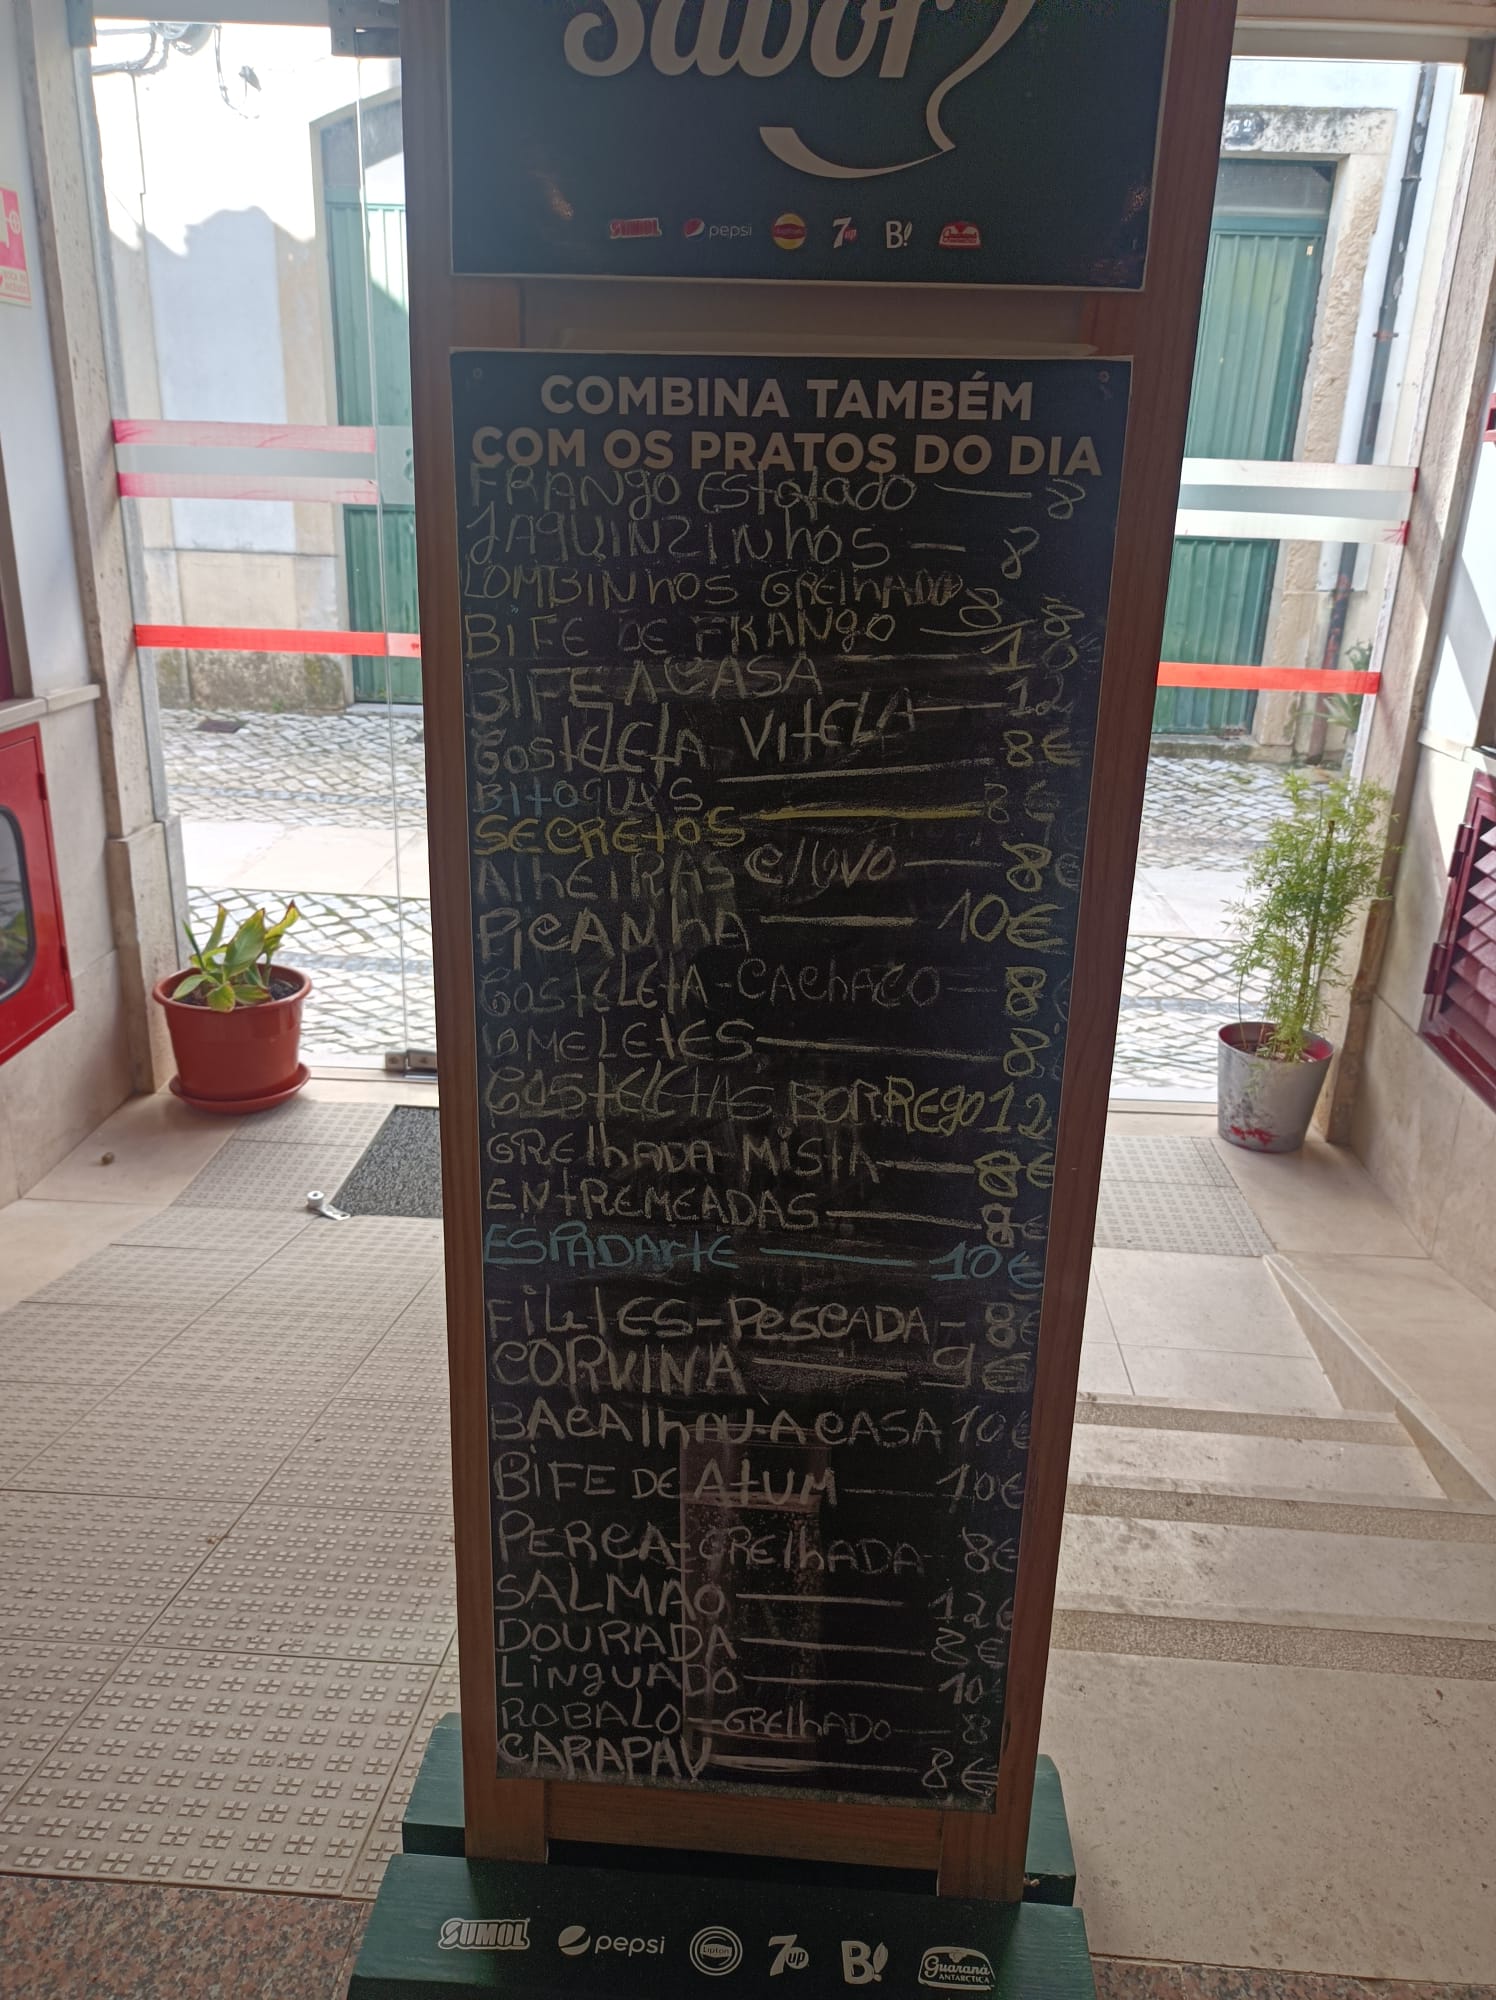 Sabor
SUMOL pepsi Lipton 7up B! Guaraná
COMBINA TAMBÉM
COM OS PRATOS DO DIA
FRANgO EStofado — 8
JAQUINZINhOS — 8
LOMBINhOS GRElhADOS 8
BIFE DE FRANgO — 8
BIFE A CASA — 10
COStELEtA VItELA — 12
BItOQUAS — 8€
SECREtOS — 8€
AlhEIRAS C/ OVO — 8€
PICANhA — 10€
COStELEtA - CAChAÇO — 8€
OMELEtES — 8
COStELEtAS BORREgO 12
GRElhADA MIStA — 8€
ENtREMEADAS — 8€
ESPADARtE — 10€
FILLES - PESCADA - 8€
CORVINA — 9€
BACAlhAU A CASA 10€
BIFE DE AtUM — 10€
PERCA - GRElhADA - 8€
SALMÃO — 12€
DOURADA — 8€
LINgUADO — 10
ROBALO — GRElhADO — 8
CARAPAU — 8€
SUMOL pepsi Lipton 7up B! Guaraná ANTARCTICA